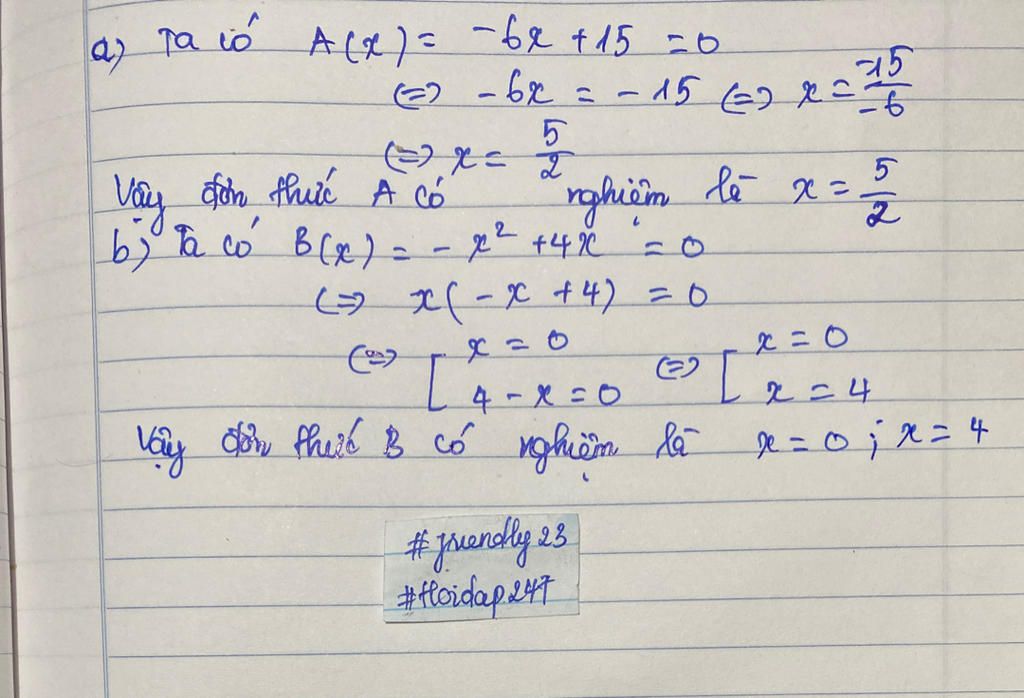 a) Ta có A(x) = -6x + 15 = 0
(=) -6x = -15 (=) x = -15/-6
(=) x = 5/2
Vậy đơn thức A có nghiệm là x = 5/2
b) Ta có B(x) = -x² + 4x = 0
(=) x(-x + 4) = 0
(=) [ x = 0 (=) [ x = 0
4 - x = 0 x = 4
Vậy đơn thức B có nghiệm là x = 0 ; x = 4
#friendly23
#Hoidap247